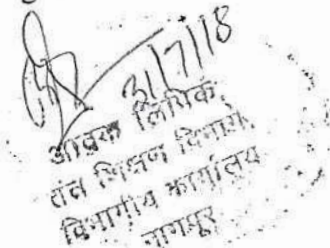 3/7/18
आवक लिपिक
तंत्र शिक्षण विभागीय
विभागीय कार्यालय
नागपूर